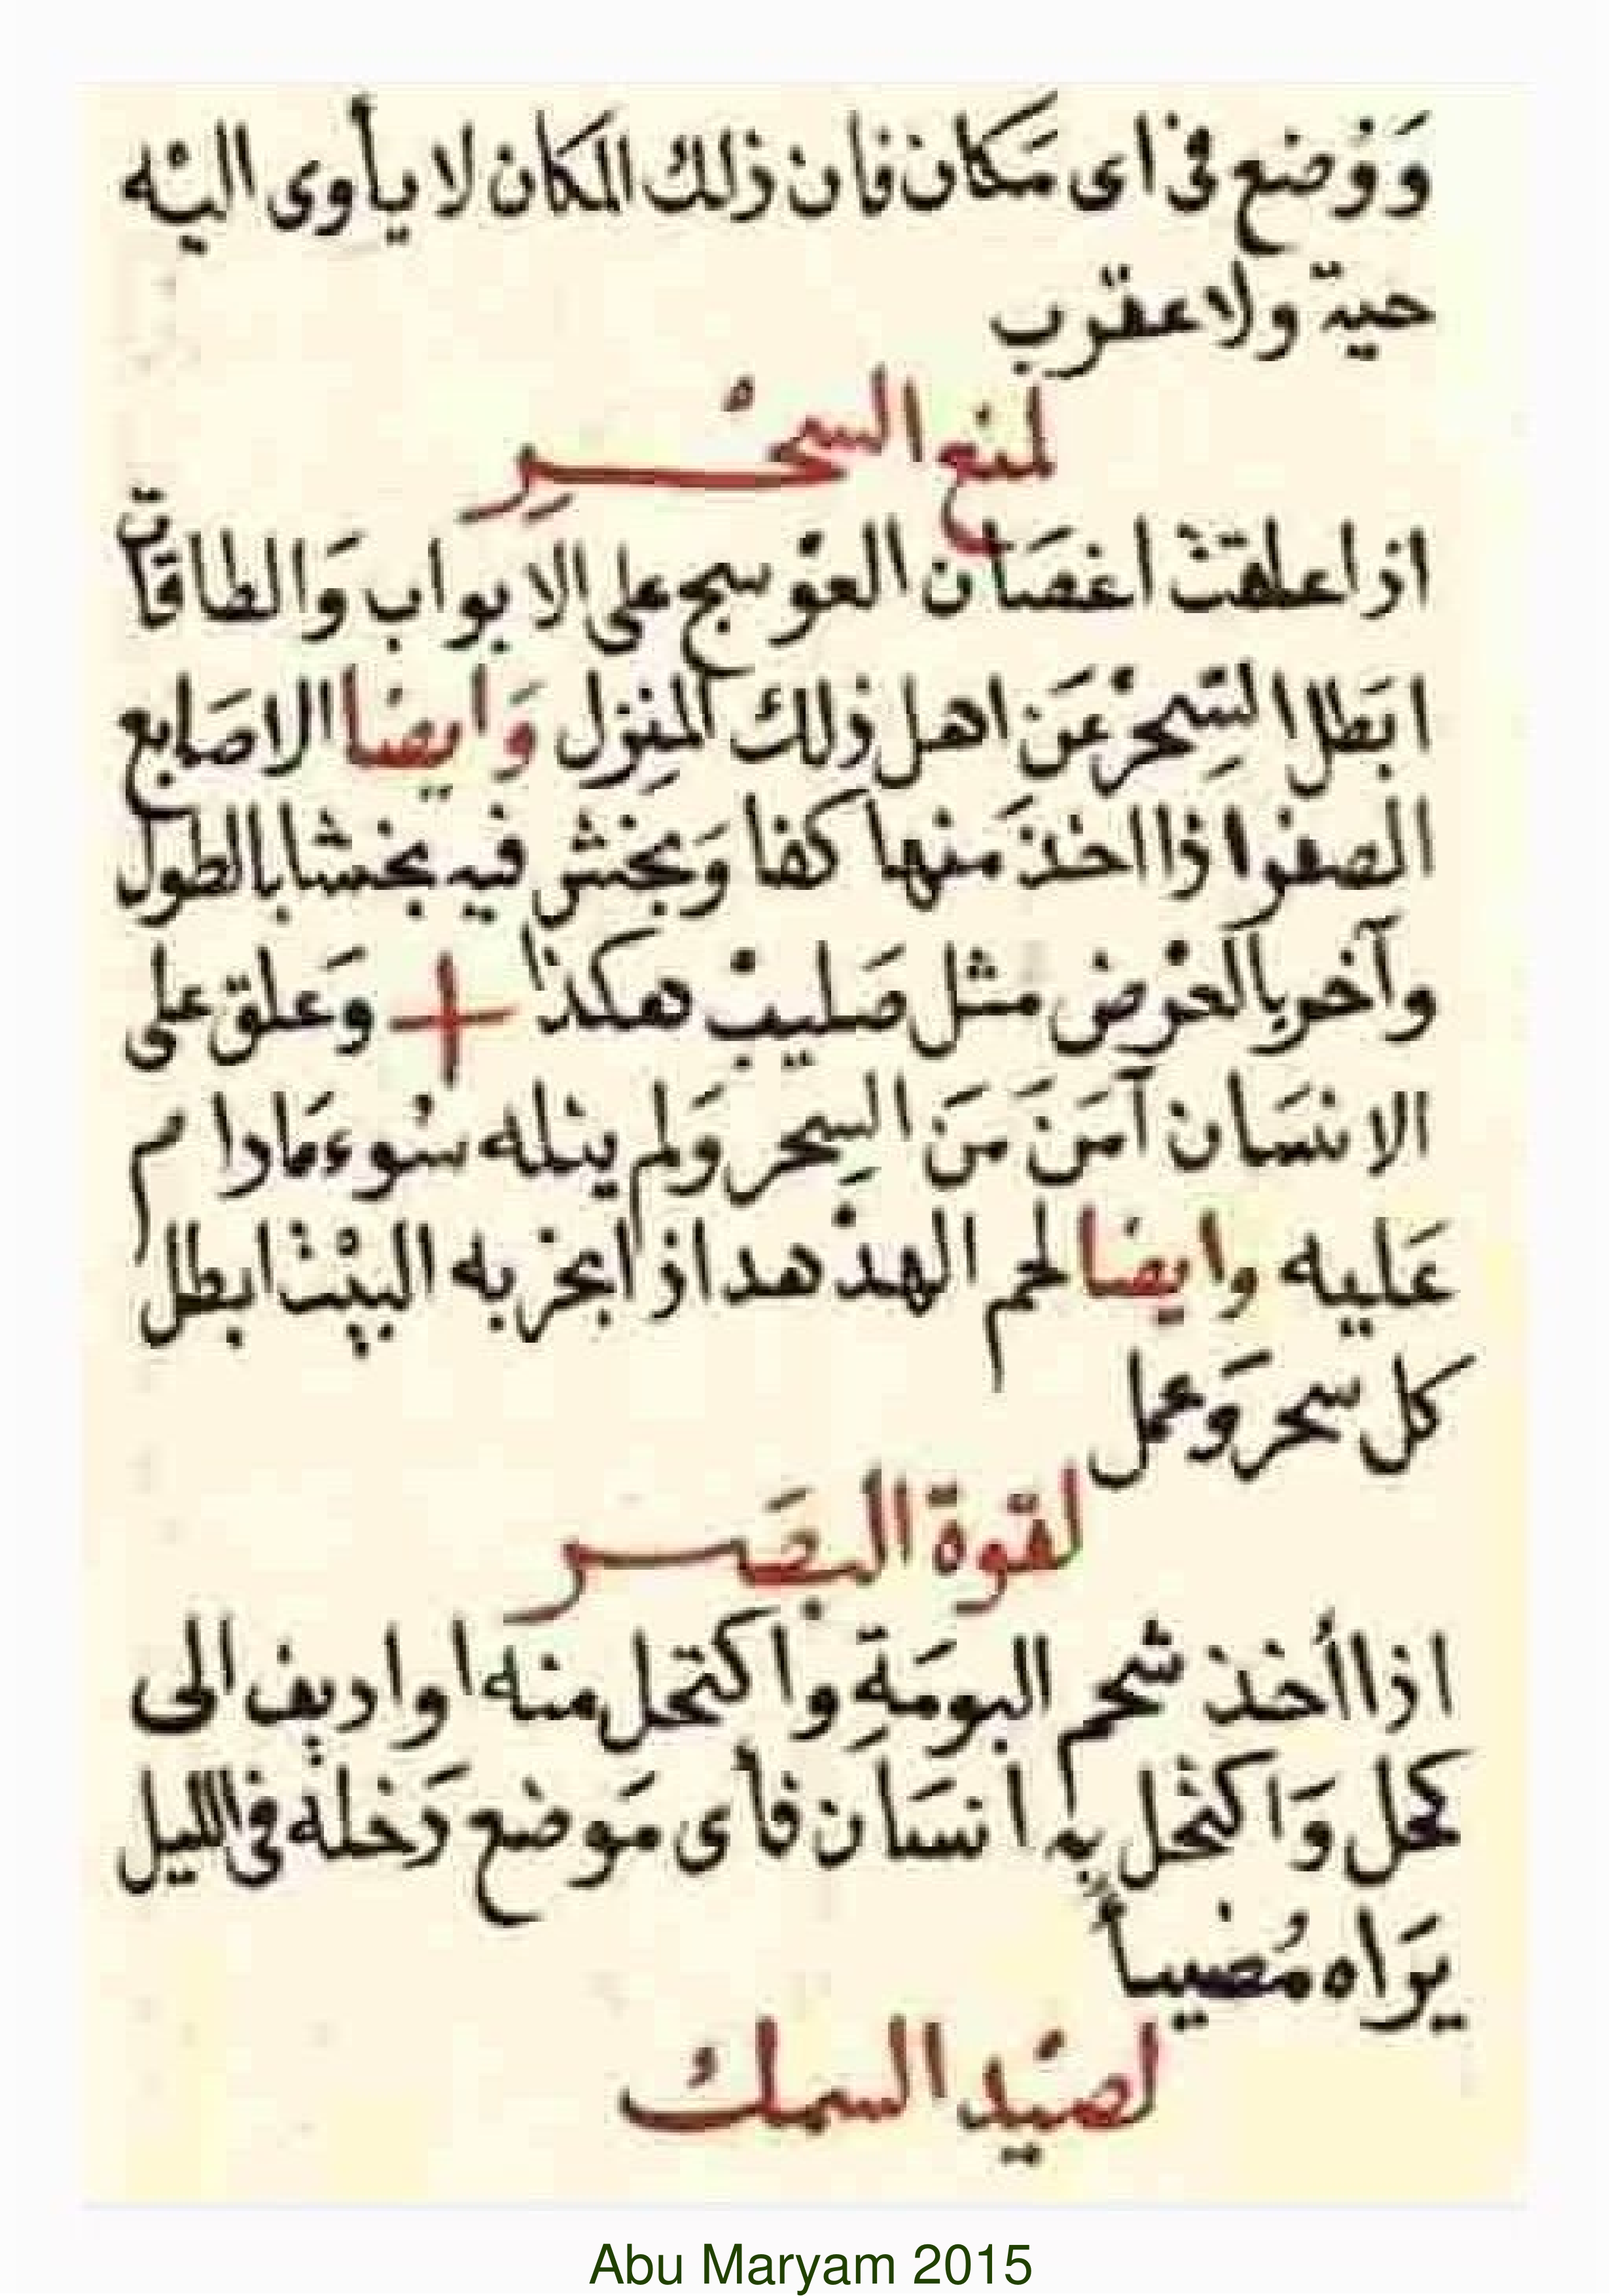 وَوُضع فى اى مَكان فان ذلك المكان لا يأوى اليْه
حية ولا عقرب
لمنع السحْر
اذا علقت اغصَان العوْسج على الابواب وَالطاقات
ابَطل السِحْر عَن اهل ذلك المنِزل وَايضا الاصَابع
الصفرا اذا اخذَ منها كفا وَبخش فيه بخشا بالطول
وآخر بالعْرض مثل صَليبْ هكذا + وَعلق على
الانسَان آمَنَ مَن السِحر وَلم ينله سُوء مَادام
عَليه وايضا لحم الهدْهد اذا بخر به البيْت ابطل
كل سحر وَعمل
لقوة البصَر
اذا أُخذ شحم البومَةِ واكتحل منه او اديف الى
كحل وَاكتحل به انسَان فأى مَوضع دَخله فى الليل
يَراه مُضيأً
لصيْد السمك
Abu Maryam 2015